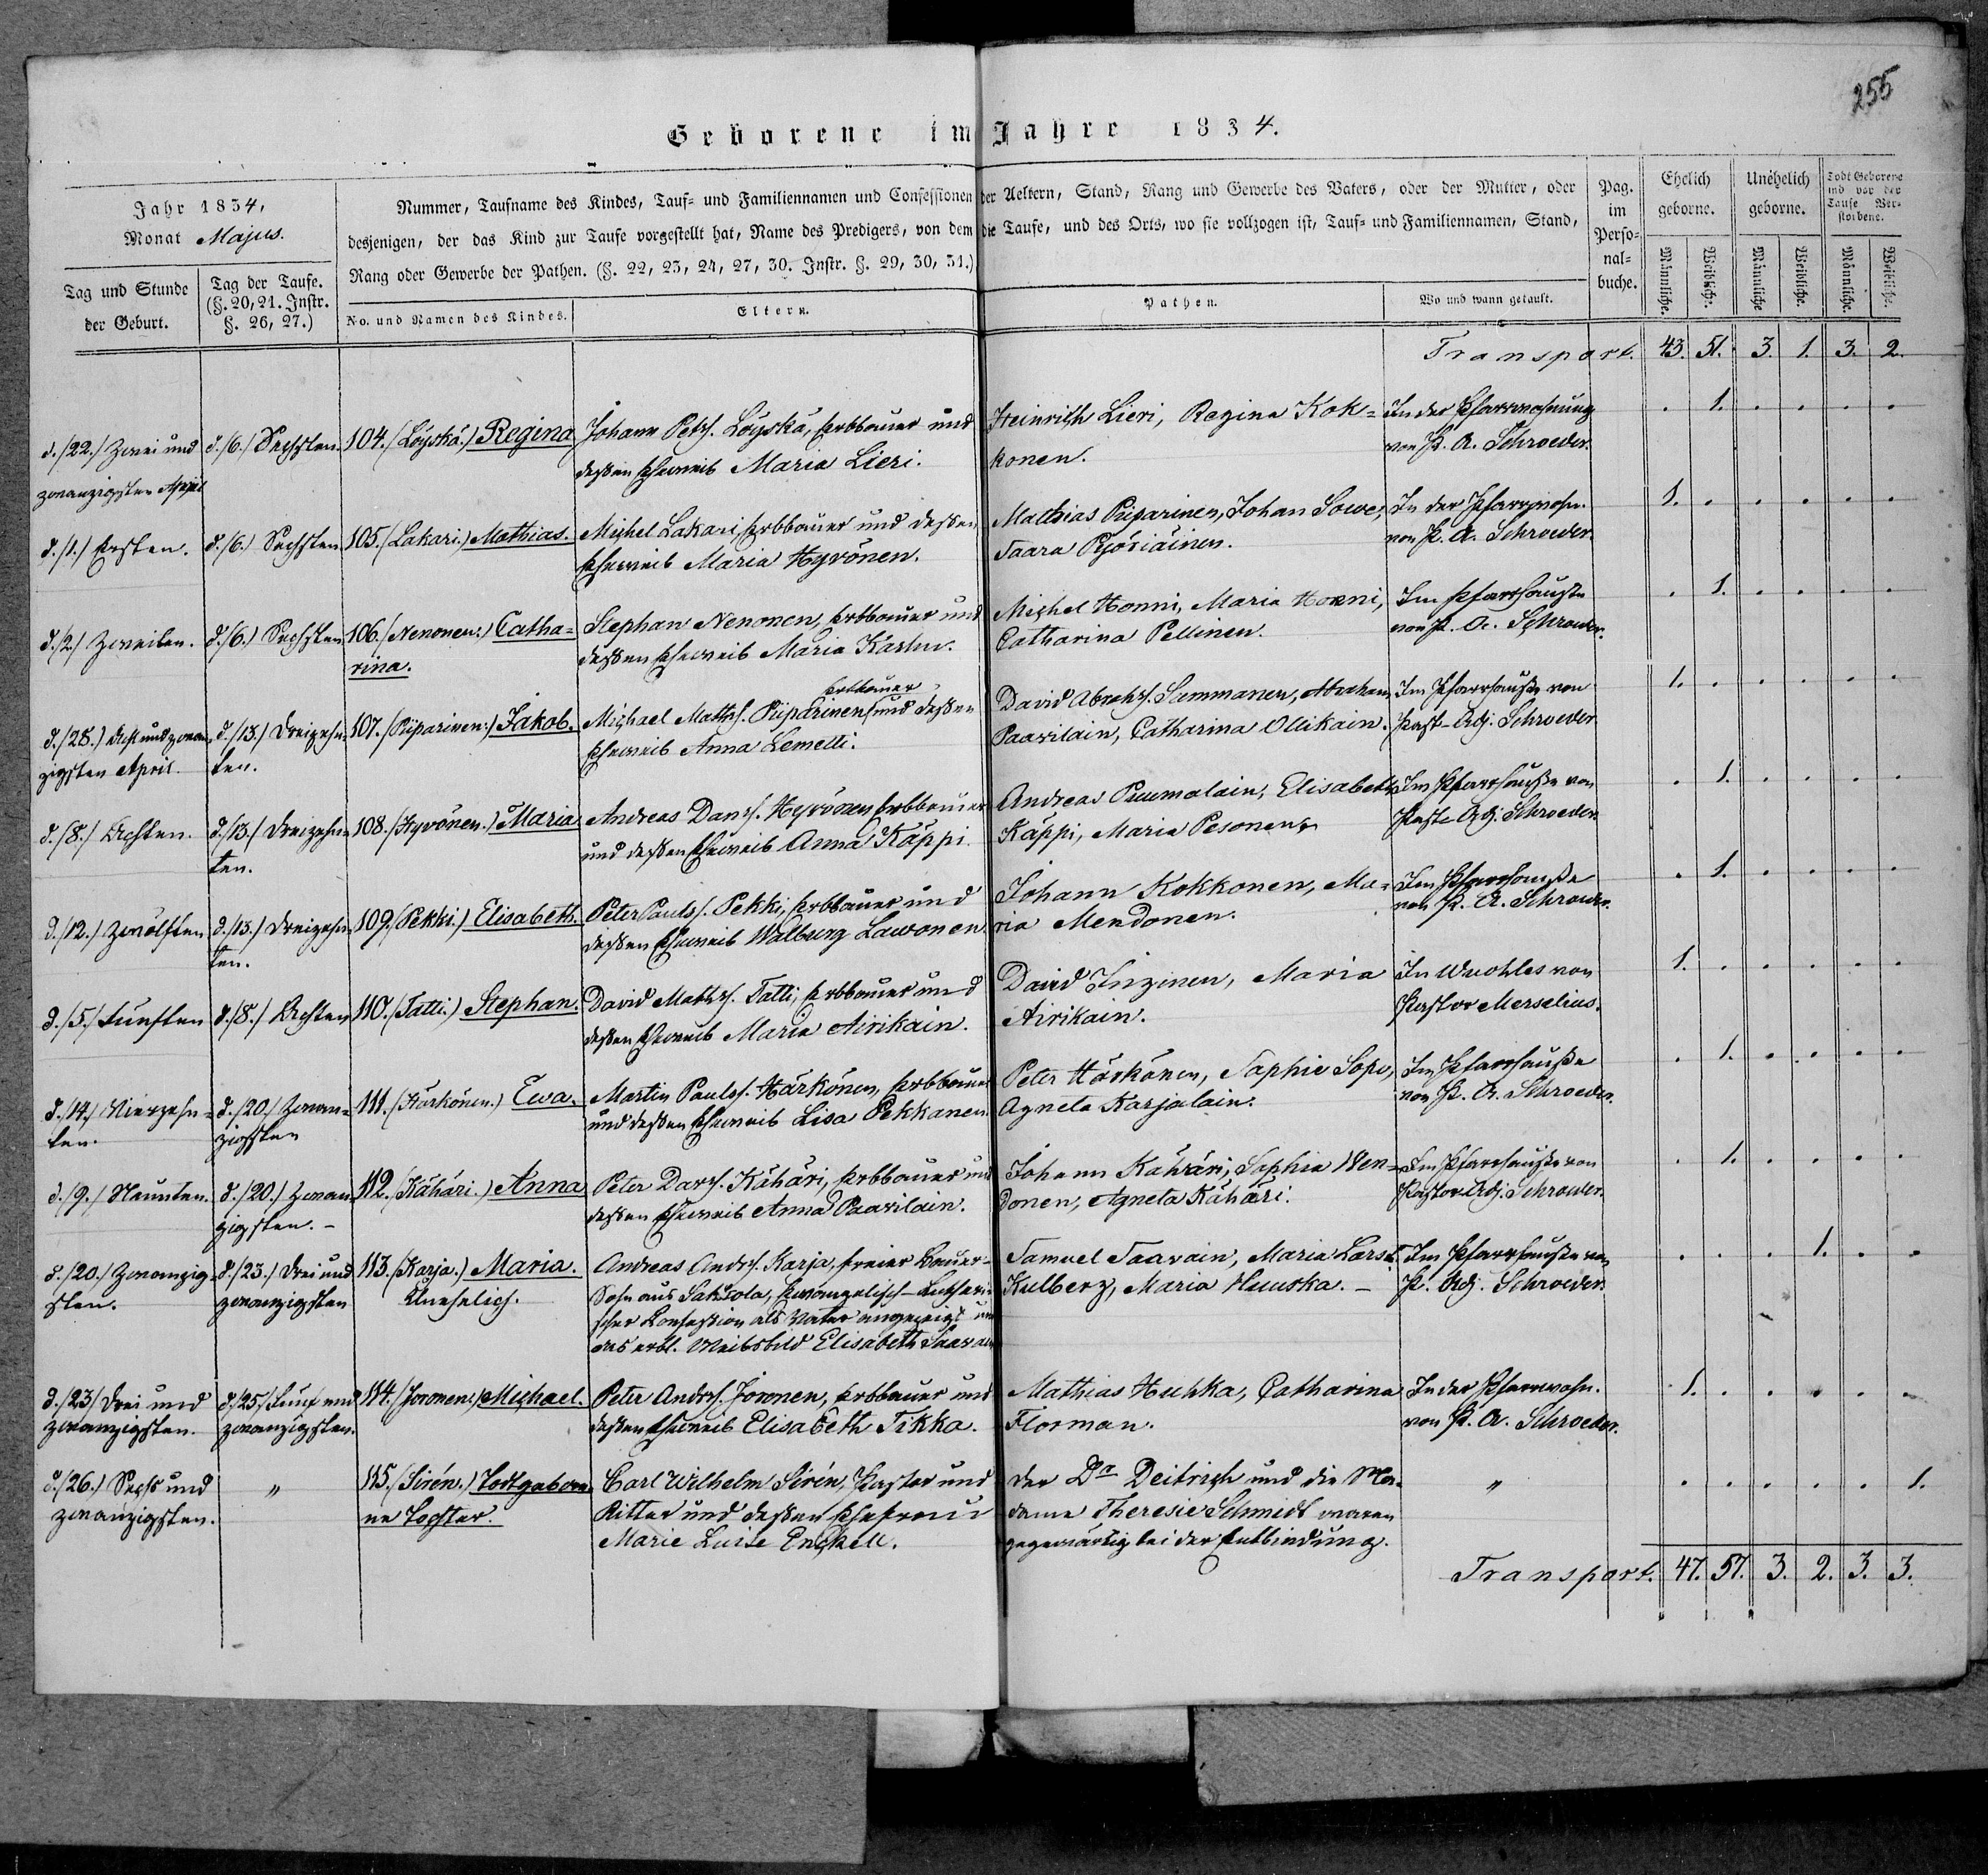 255
Geborene im Jahre 1834.
Jahr 1834,
Monat Majus.
Tag und Stunde der Geburt.
Tag der Taufe. (§. 20, 21. Instr. §. 26, 27.)
Nummer, Taufname des Kindes, Tauf- und Familiennamen und Confessionen der Aeltern, Stand, Rang und Gewerbe des Vaters, oder der Mutter, oder
desjenigen, der das Kind zur Taufe vorgestellt hat, Name des Predigers, von dem die Taufe, und des Orts, wo sie vollzogen ist, Tauf- und Familiennamen, Stand,
Rang oder Gewerbe der Pathen. (§. 22, 23, 24, 27, 30. Instr. §. 29, 30, 31.)
No. und Namen des Kindes.
Eltern.
Pathen.
Wo und wann getauft.
Pag. im Perso-nal-buche.
Ehelich geborne.
Unehelich geborne.
Todt Geborene und vor der Taufe Ver-storbene.
Männliche. Weibliche. Männliche Weibliche. Männliche. Weibliche.
Transport. 43. 51. 3. 1. 3. 2.
d. /22./ Zwei und zwanzigsten April
d. /6./ Sechsten.
104. (Löyskä.) Regina
Johann Petrs. Löyskä, Erbbauer und
deßen Eheweib Maria Lieri.
Heinrich Lieri, Regina Kok=
konen.
In der Pfarrwohnung
von P. A. Schroeder.
. 1. . . . .
d. /1./ Ersten.
d. /6./ Sechsten
105. (Lakari.) Mathias.
Michel Lakari, Erbbauer und deßen
Eheweib Maria Hyvönen.
Mathias Piiparinen, Johan Sowe,
Saara Pjöriäinen.
In der Pfarrwohn.
von P. A. Schroeder.
1. . . . . .
d. /2./ Zweiten.
d. /6./ Sechsten
106. (Nenonen:) Catha=
rina.
Stephan Nenonen, Erbbauer und
deßen Eheweib Maria Karhu.
Michel Honni, Maria Honni,
Catharina Pellinen.
Im Pfarrhauße
von P. A. Schroeder.
. 1. . . . .
d. /28./ Acht und zwan
zigsten April.
d. /13./ Dreizehn
ten.
107. (Piiparinen:) Jakob.
Erbbauer
Michael Maths. Piiparinen und deßen
Eheweib Anna Lemetti.
David Abrahs. Summanen, Abraham
Paavilain, Catharina Ollikain.
Im Pfarrhauße von
Past. Adj. Schroeder
1. . . . . .
d. /8./ Achten.
d. /13./ Dreizehn=
ten.
108. (Hyvönen.) Maria
Andreas Dans. Hyvönen, Erbbauer
und deßen Eheweib Anna Käppi.
Andreas Puumalain, Elisabeth
Käppi, Maria Pesonen.
Im Pfarrhauße von
Past. Adj. Schroeder
. 1. . . . .
d. /12./ Zwölften
d. /13./ Dreizehn
ten.
109. (Pekki.) Elisabeth.
Peter Pauls. Pekki, Erbbauer und
deßen Eheweib Walburg Lawonen
Johann Kokkonen, Ma=
ria Mendonen.
Im Pfarrhauße
von P. A. Schroeder.
. 1. . . . .
d. /5./ Fünften
d. /8./ Achten
110. (Tatti.) Stephan.
David Maths. Tatti, Erbbauer und
deßen Eheweib Maria Airikain.
David Inginen, Maria
Airikain.
In Wuohles von
Pastor Merselius.
1. . . . . .
d. /14./ Vierzehn=
ten.
d. /20./ Zwan=
zigsten
111. (Härkönen.) Ewa.
Martin Pauls. Härkönen, Erbbauer
und deßen Eheweib Lisa Pekkanen.
Peter Härkönen, Sophie Sope,
Agneta Karjalain.
Im Pfarrhauße
von P. A. Schroeder.
. 1. . . . .
d. /9./ Neunten.
d. /20./ Zwan
zigsten. -
112. (Kähäri.) Anna
Peter Davs. Kähäri, Erbbauer und
deßen Eheweib Anna Paavilain.
Johann Kähäri, Sophia Men=
donen, Agneta Kähäri.
Im Pfarrhauße von
Pastor Adj. Schroeder.
. 1. . . . .
d. /20./ Zwanzig=
sten.
d. /23./ Drei und
zwanzigsten
113. (Karja.) Maria.
Unehelich.
Andreas Andrs. Karja, freier Bauer=
Sohn aus Sakkola, Evangelisch-Lutheri
scher Confession als Vater angezeigt und
das erbl. Weibsbild Elisabeth Saavain
Samuel Saavain, Maria Larsd.
Kulberg, Maria Huuska. -
Im Pfarrhauße von
P. Adj. Schroeder.
. . . 1. . .
d. /23/ Drei und
zwanzigsten.
d. /25./ Fünf und
zwanzigsten.
114. (Joronen:) Michael.
Peter Andrs. Joronen, Erbbauer und
deßen Eheweib Elisabeth Tikka.
Mathias Huhka, Catharina
Florman.
In der Pfarrwohn.
von P. A. Schroeder.
1. . . . . .
d. /26./ Sechs und
zwanzigsten.
"
115. (Sirén.) Todtgebore
ne Tochter.
Carl Wilhelm Sirén, Pastor und
Ritter und deßen Ehefrau
Marie Luise Enckell.
Der Dr Deitrich und die Ma-
dame Theresie Schmidt waren
gegenwärtig bei der Entbindung.
"
. . . . . 1.
Transport. 47. 57. 3. 2. 3. 3.